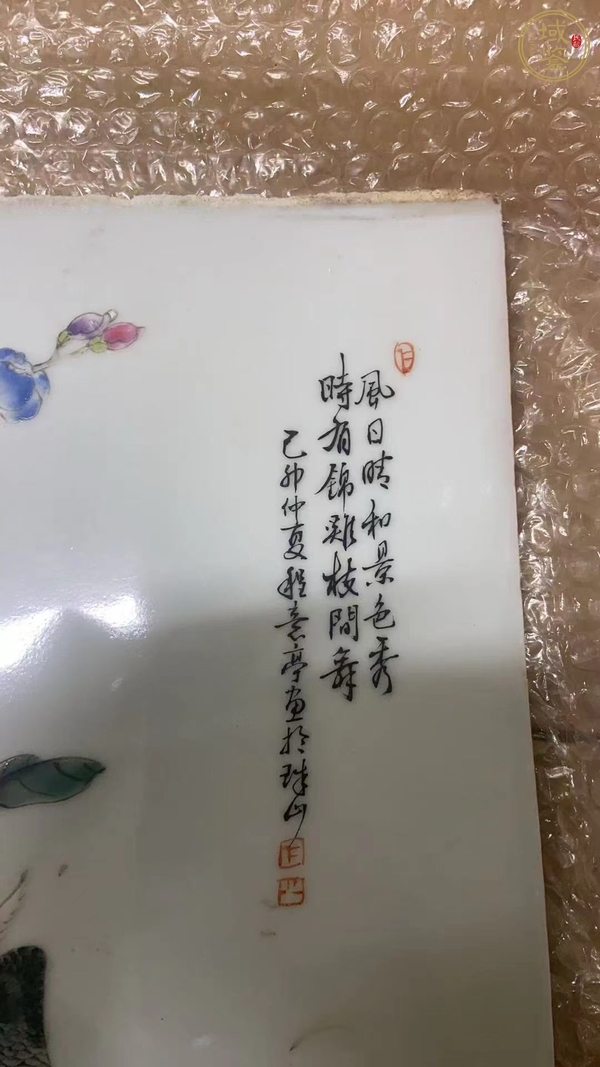 風日晴和景色秀
時有錦雞枝間舞
己卯仲夏程意亭畫於珠山